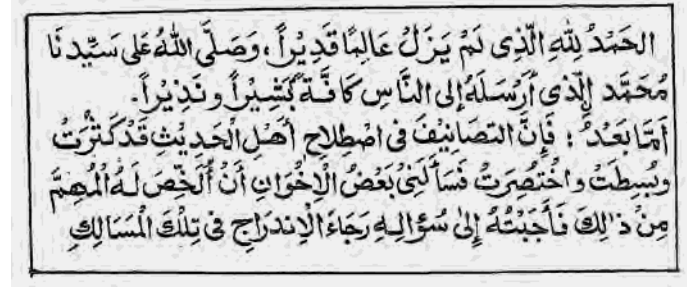 الحَمْدُ لِلّٰهِ الَّذِى لَمْ يَزَلْ عَالِمًا قَدِيْراً، وَصَلَّى اللهُ عَلىٰ سَيِّدِنَا
مُحَمَّد الَّذِى أَرْسَلَهُ إلى النَّاسِ كَافَّةً بَشِيْراً و نَذِيْراً.
أمَّا بَعْدُ : فَإِنَّ التصَانِيْفَ فى اصْطِلاح أهْلِ الْحَدِيْثِ قَدْ كَثُرَتْ
وبُسِطَتْ واخْتُصِرَتْ فَسَأَلَنِىْ بَعْضُ الْاِخْوَانِ أَنْ أُلَخِّصَ لَهُ الْمُهِمَّ
مِنْ ذٰلِكَ فَأَجَبْتُهُ إِلىٰ سُؤَالِهِ رَجَاءَ الْاِندَرَاجِ فى تِلْكَ الْمَسَالِكِ